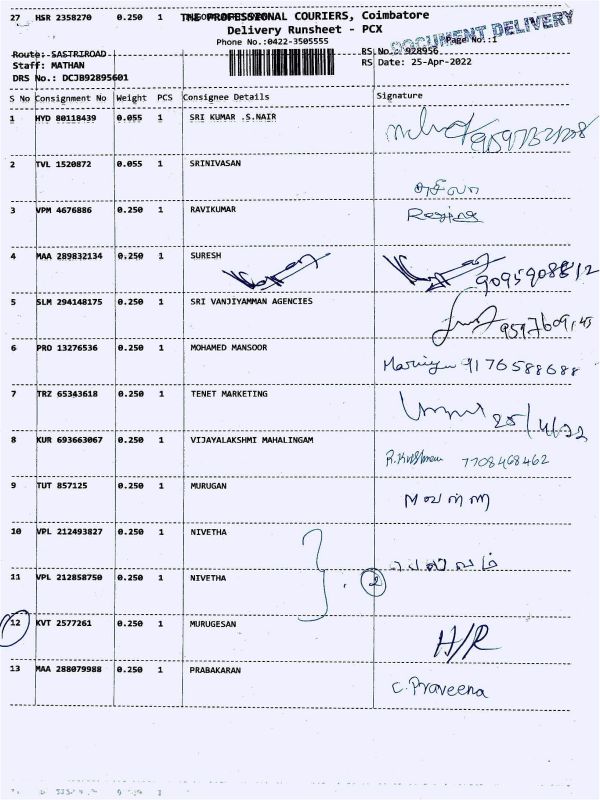 27 HSR 2358270 0.250 1 THE PROFESSIONAL COURIERS, Coimbatore
DOCUMENT DELIVERY
Delivery Runsheet - PCX
Phone No.:0422-3505555 Page No.:1
Route: SASTRIROAD RS No. 928956
Staff: MATHAN RS Date: 25-Apr-2022
DRS No.: DCJB92895601
S No Consignment No Weight PCS Consignee Details Signature
1 HYD 80118439 0.055 1 SRI KUMAR .S.NAIR
2 TVL 1520872 0.055 1 SRINIVASAN
3 VPM 4676886 0.250 1 RAVIKUMAR Regina
4 MAA 289832134 0.250 1 SURESH
5 SLM 294148175 0.250 1 SRI VANJIYAMMAN AGENCIES
6 PRO 13276536 0.250 1 MOHAMED MANSOOR 9176588688
7 TRZ 65343618 0.250 1 TENET MARKETING 25/4/22
8 KUR 693663067 0.250 1 VIJAYALAKSHMI MAHALINGAM 7708468462
9 TUT 857125 0.250 1 MURUGAN
10 VPL 212493827 0.250 1 NIVETHA
11 VPL 212858750 0.250 1 NIVETHA 2
12 KVT 2577261 0.250 1 MURUGESAN H/R
13 MAA 288079988 0.250 1 PRABAKARAN C. Praveena